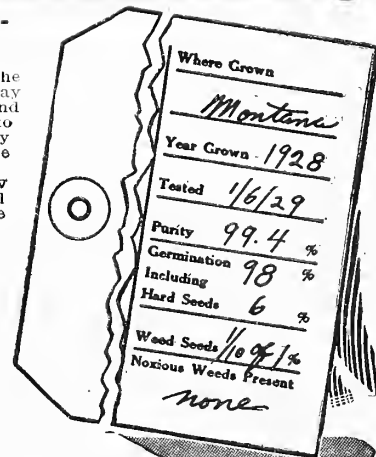 he
ay
nd
to
y
e
y
l
e
Where Grown
Montana
Year Grown 1928
Tested 1/6/29
Purity 99.4 %
Germination 98 %
Including
Hard Seeds 6 %
Weed Seeds 1/10 of 1 %
Noxious Weeds Present
none